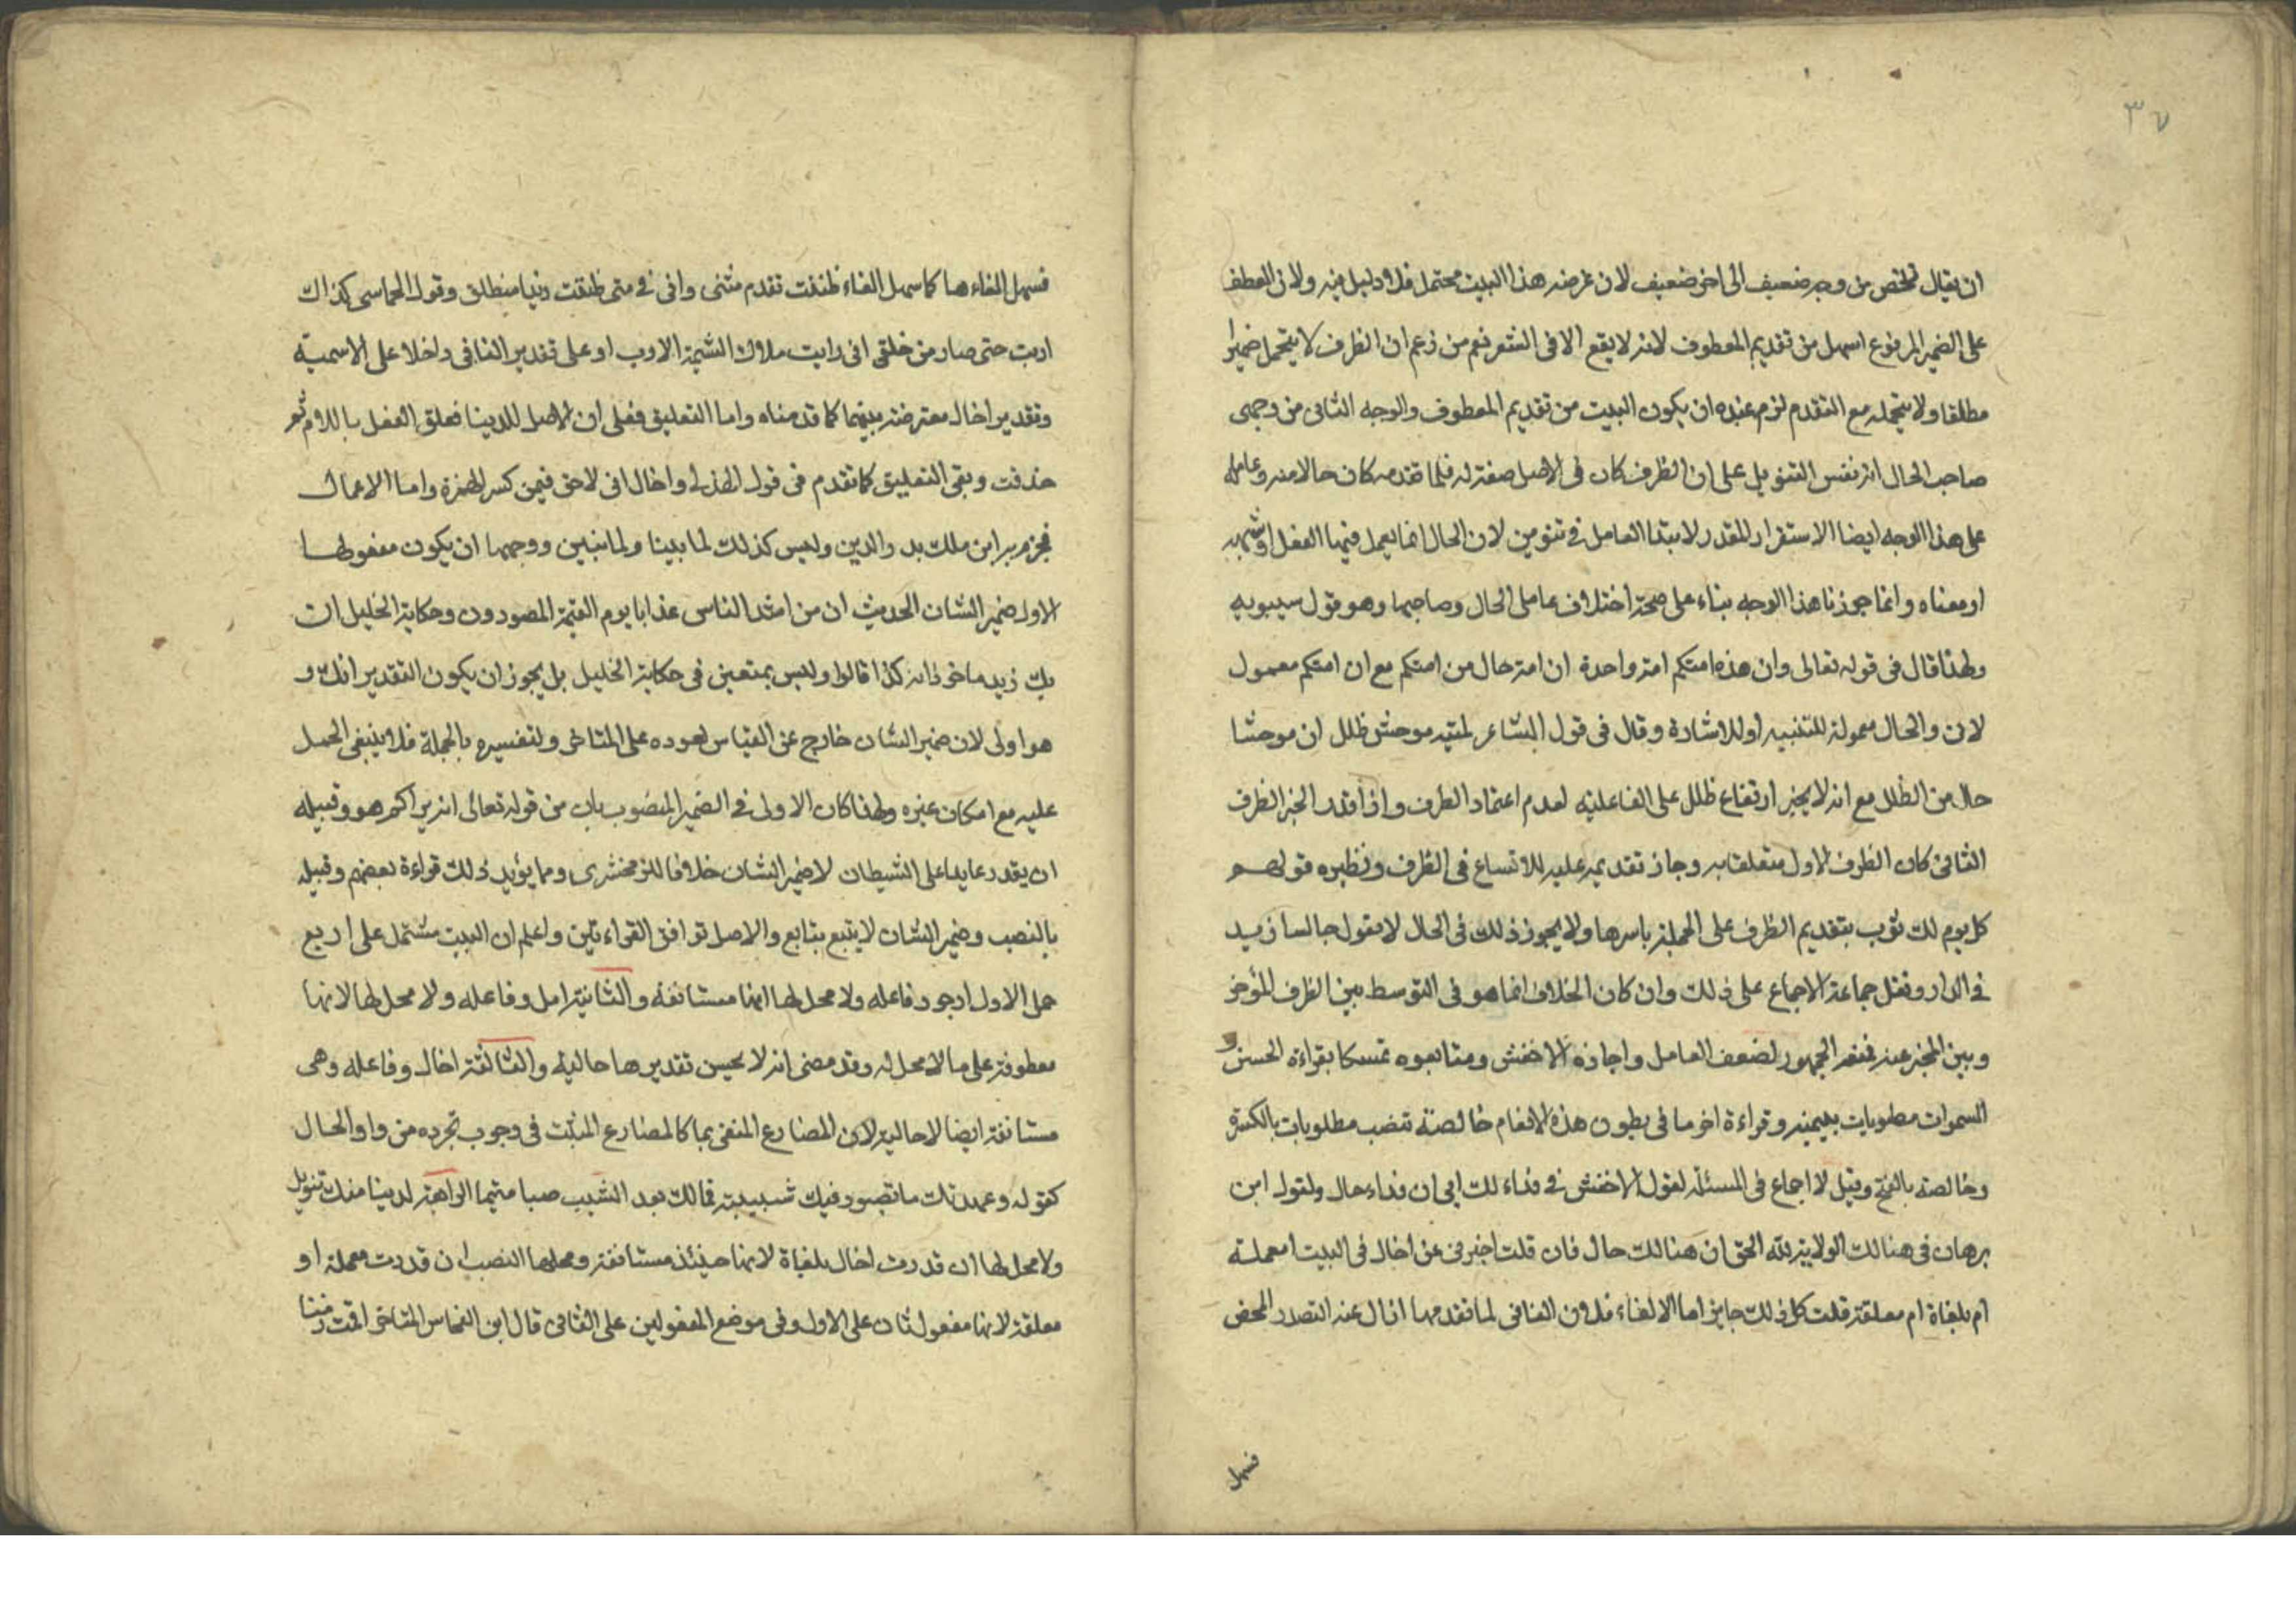 ٣٧
ان يقال تخلص من وجه ضعيف الى اخر ضعيف لان غرضه هذا البيت محتمل فلا دليل فيه ولان العطف
على الضمير المرفوع اسهل من تقديم المعطوف لانه لا يقع الا في الشعر فنعم من زعم ان الظرف لا يتحمل ضميرا
مطلقا ولا يتحمله مع التقدم لزم عنده ان يكون البيت من تقديم المعطوف والوجه الثاني من وجهى
صاحب الحال انه نفس التنويل على ان الظرف كان في الاصل صفة له فلما تقدمه كان حالا منه وعامله
على هذا الوجه ايضا الاستقرار المقدر لابتدا العامل في تنويل لان الحال انما يعمل فيها الفعل او شبهه
او معناه وانما جوزنا هذا الوجه بناء على صحة اختلاف عاملى الحال وصاحبها وهو قول سيبويه
ولهذا قال في قوله تعالى وان هذه امتكم امة واحدة ان امة حال من امتكم مع ان امتكم معمول
لان والحال معمولة للتنبيه او للاشارة وقال في قول الشاعر لمية موحش طلل ان موحشا
حال من الطلل مع انه لا يجيز ارتفاع طلل على الفاعلية لعدم اعتماد الظرف واذا قدر الخبر الظرف
الثاني كان الظرف الاول متعلقا به وجاز تقديمه عليه للاتساع في الظرف ونظيره قولهم
كل يوم لك ثوب بتقديم الظرف على الجملة باسرها ولا يجوز ذلك في الحال لا تقول جالسا زيد
في الدار ونقل جماعة الاجماع على ذلك وان كان الخلاف انما هو في التوسط بين الظرف المؤخر
وبين المخبر عنه فمنعه الجمهور لضعف العامل واجازه الاخفش ومتابعوه تمسكا بقراءة الحسن و
السموات مطويات بيمينه وقراءة اخر ما في بطون هذه الانعام خالصة بنصب مطلويات بالكسرة
وخالصة بالفتح وقيل لا اجماع في المسئلة لقول الاخفش في فداء لك ابي ان فداء حال ولقول ابن
برهان في هنالك الولاية لله الحق ان هنالك حال فان قلت اخبرني عن اخال في البيت امعملة
ام ملغاة ام معلقة قلت كل ذلك جايز اما الالغاء فلان النافي لما تقدمها ازال عنه التصدر المحض
فسهل
فسهل الغاءها كما سهل الغاء ظننت تقدم متى وانى في متى ظننت زيدا منطلق وقول الحماسى كذاك
ادبت حتى صار من خلقى انى رايت ملاك الشيمة الادب او على تقدير النافى داخلا على الاسمية
وتقدير اخال معترضة بينهما كما قدمناه واما التعليق فعلى ان الاصل للدينا فعلق الفعل باللام ثم
حذفت وبقى التعليق كما تقدم في قول الهذلى واخال انى لاحق فيمن كسر الهمزة واما الاعمال
فجزم به ابن ملك بدر الدين وليس كذلك لما بينا ولما نبين ووجهها ان يكون مفعولها
الاول ضمير الشان الحديث ان من اشد الناس عذابا يوم القيمة المصورون وحكاية الخليل ان
بك زيد ماخوذ انه كذا قالوا وليس بمتعين في حكاية الخليل بل يجوز ان يكون التقدير انك و
هو اولى لان ضمير الشان خارج عن القياس لعوده على المتاخر ولتفسيره بالجملة فلا ينبغي الحمل
عليه مع امكان غيره ولهذا كان الاولى في الضمير المنصوب بان من قوله تعالى انه يراكم هو وقبيله
ان يقدر عايدا على الشيطان لا ضمير الشان خلافا للزمخشرى ومما يؤيد ذلك قراءة بعضهم وقبيله
بالنصب وضمير الشان لا يتبع بتابع والاصل توافق القراءتين واعلم ان البيت مشتمل على اربع
جمل الاول ارجو وفاعله ولا محل لها انها مستانفة والثانية امل وفاعله ولا محل لها لانها
معطوفة على ما لا محل له وقد مضى انه لا يحسن تقديرها حالية والثالثة اخال وفاعله وهى
مستانفة ايضا لا حالية لان المضارع المنفى بما كالمضارع المثبت في وجوب تجرده من واو الحال
كقوله وعهدتك ما تصبو وفيك شبيبة فما لك بعد الشيب صبا متيما الرابعة لدينا منك تنويل
ولا محل لها ان قدرت اخال ملغاة لانها حينئذ مستانفة ومحلها النصب ان قدرت معملة او
معلقة لانها مفعول ثان على الاول وفى موضع المفعولين على الثانى قال ابن النحاس المتاخر اقمت زمنا